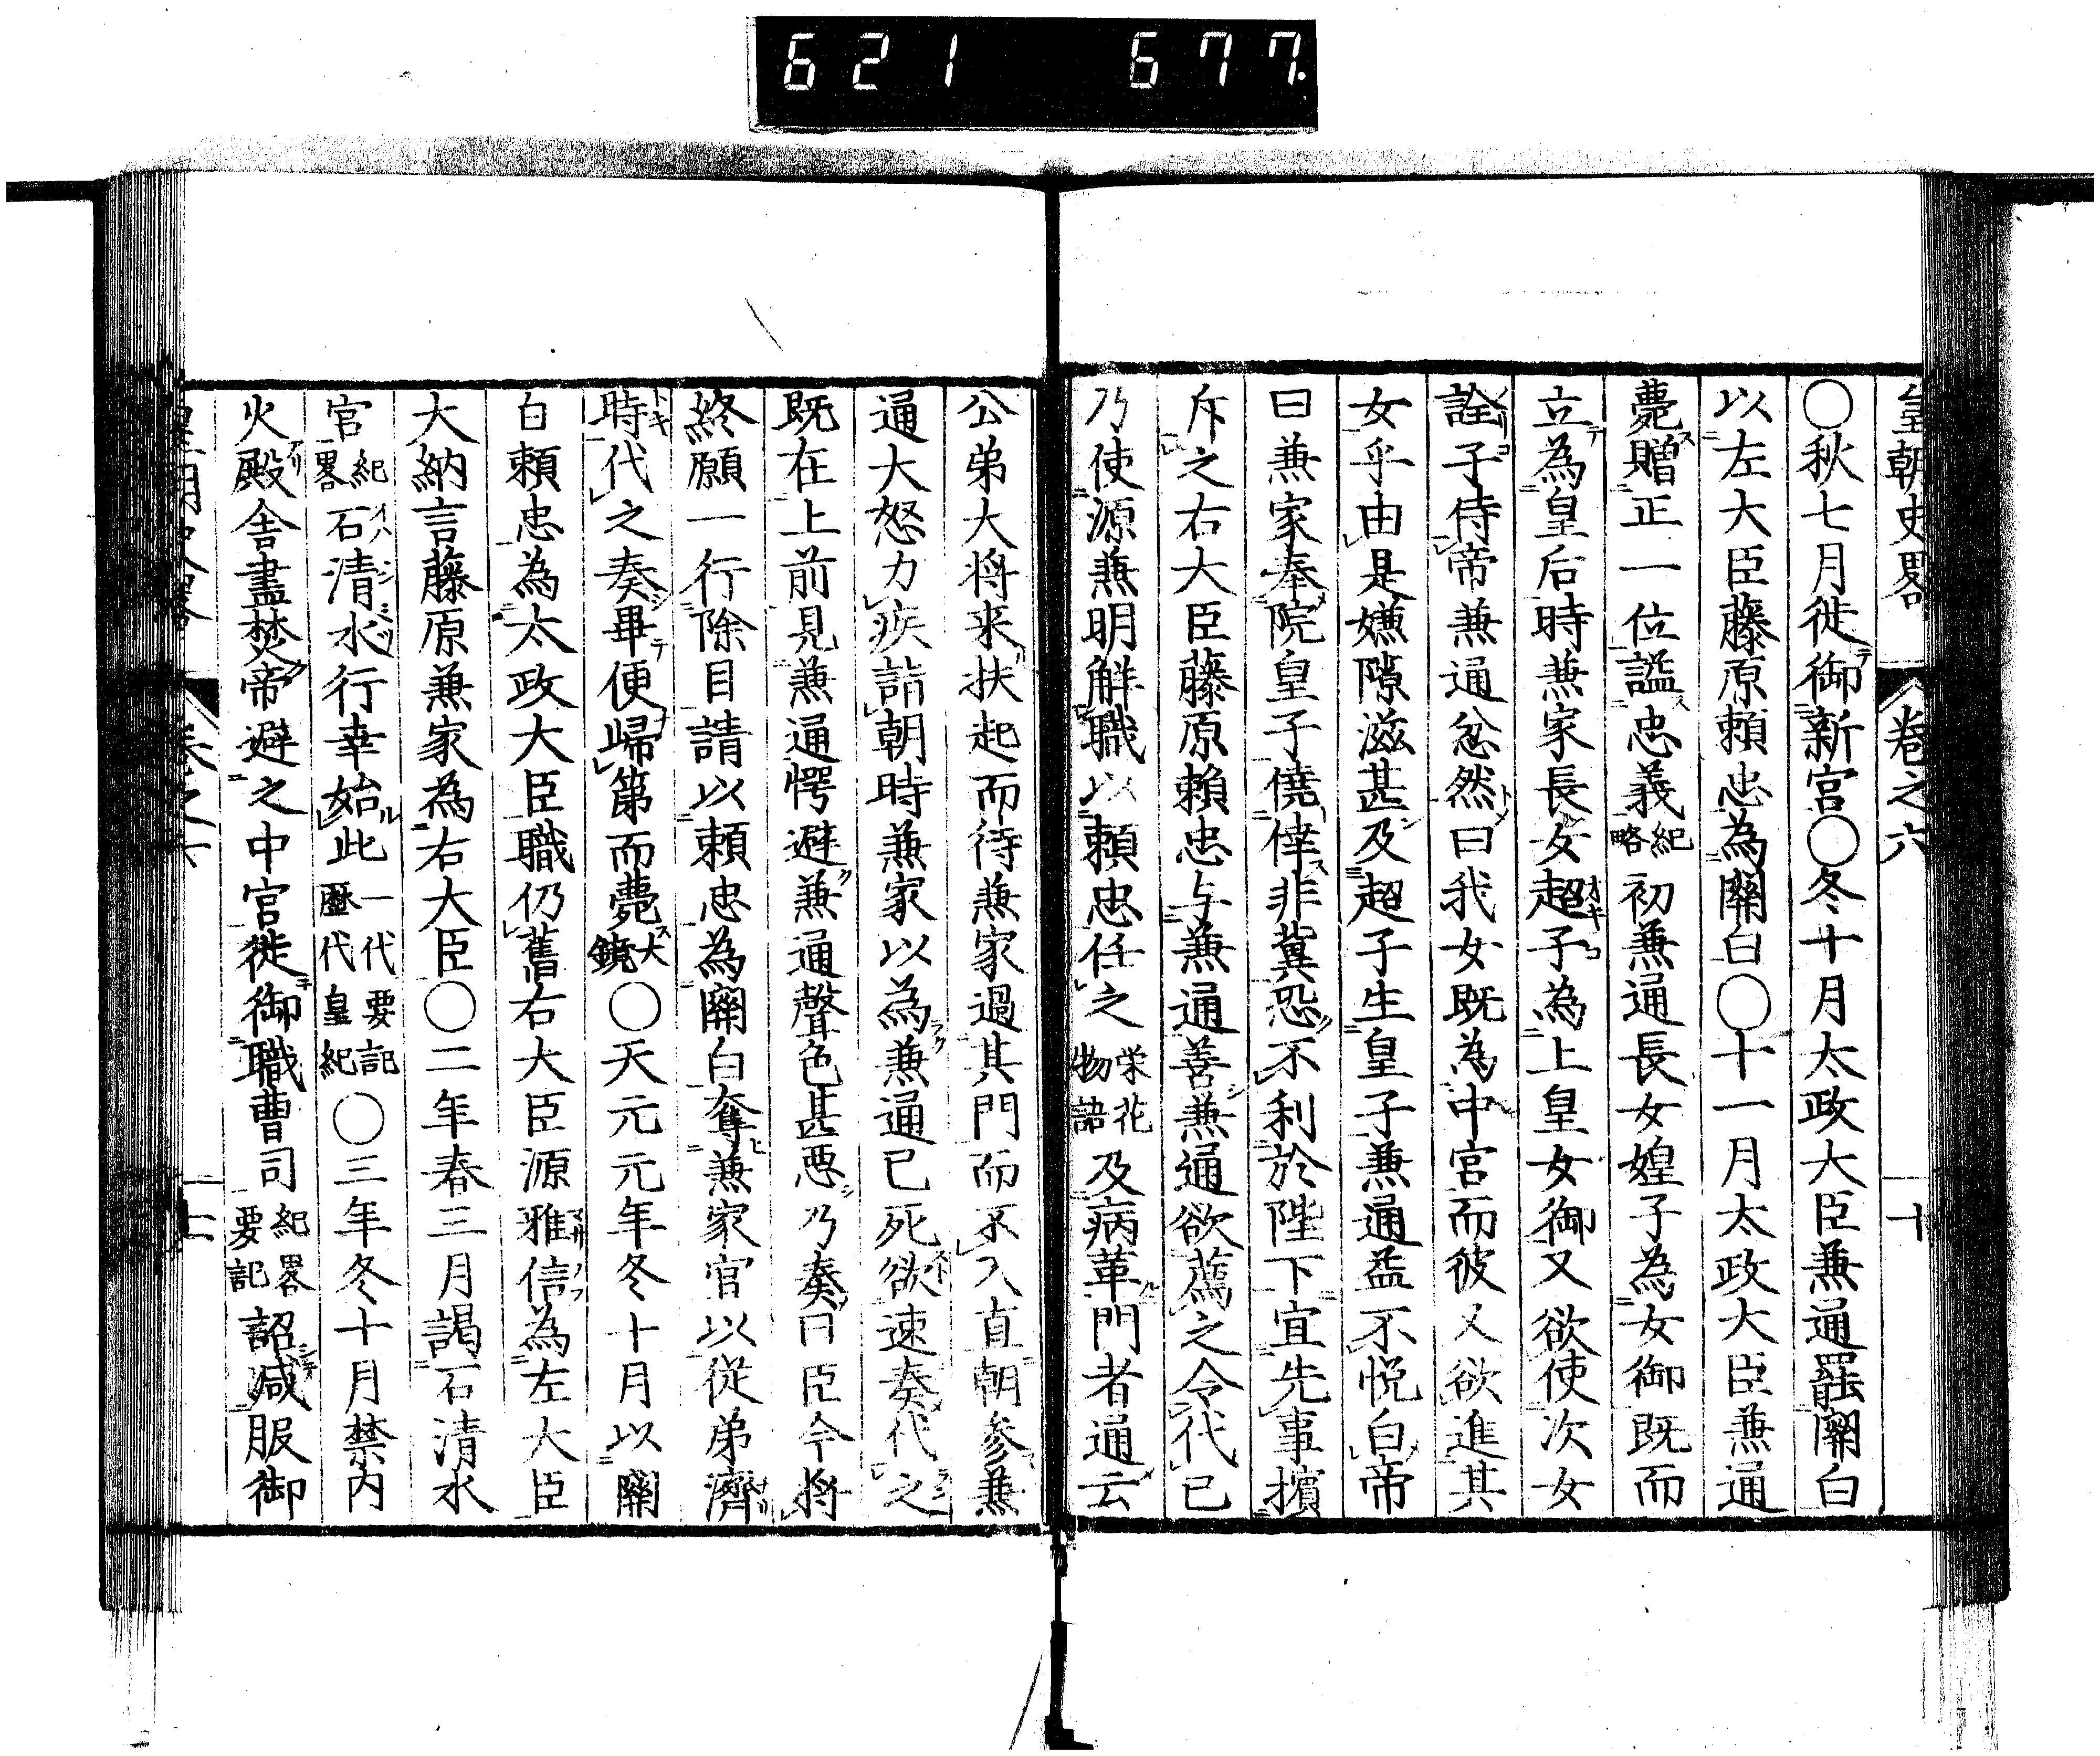 621 677.
皇朝史畧 卷之六 十
〇秋七月徙御新宮〇冬十月太政大臣兼通罷關白
以左大臣藤原頼忠為關白〇十一月太政大臣兼通
薨贈正一位謚忠義紀略初兼通長女媓子為女御既而
立為皇后時兼家長女超子為上皇女御又欲使次女
詮子侍帝兼通忿然曰我女既為中宮而彼又欲進其
女乎由是嫌隙滋甚及超子生皇子兼通益不悦白帝
曰兼家奉院皇子僥倖非冀恐不利於陛下宜先事擯
斥之右大臣藤原頼忠与兼通善兼通欲薦之令代已
乃使源兼明解職以頼忠任之栄花物語及病革門者通云
公弟大将来扶起而待兼家過其門而不入直朝参兼
通大怒力疾詣朝時兼家以為兼通已死欲速奏代之
既在上前見兼通愕避兼通聲色甚悪乃奏曰臣今将
終願一行除目請以頼忠為關白奪兼家官以從弟濟
時代之奏畢便歸第而薨大鏡〇天元元年冬十月以關
白頼忠為太政大臣職仍舊右大臣源雅信為左大臣
大納言藤原兼家為右大臣〇二年春三月謁石清水
官紀畧石清水行幸始此一代要記歴代皇紀〇三年冬十月禁内
火殿舎盡焚帝避之中宮徙御職曹司紀畧要記詔减服御